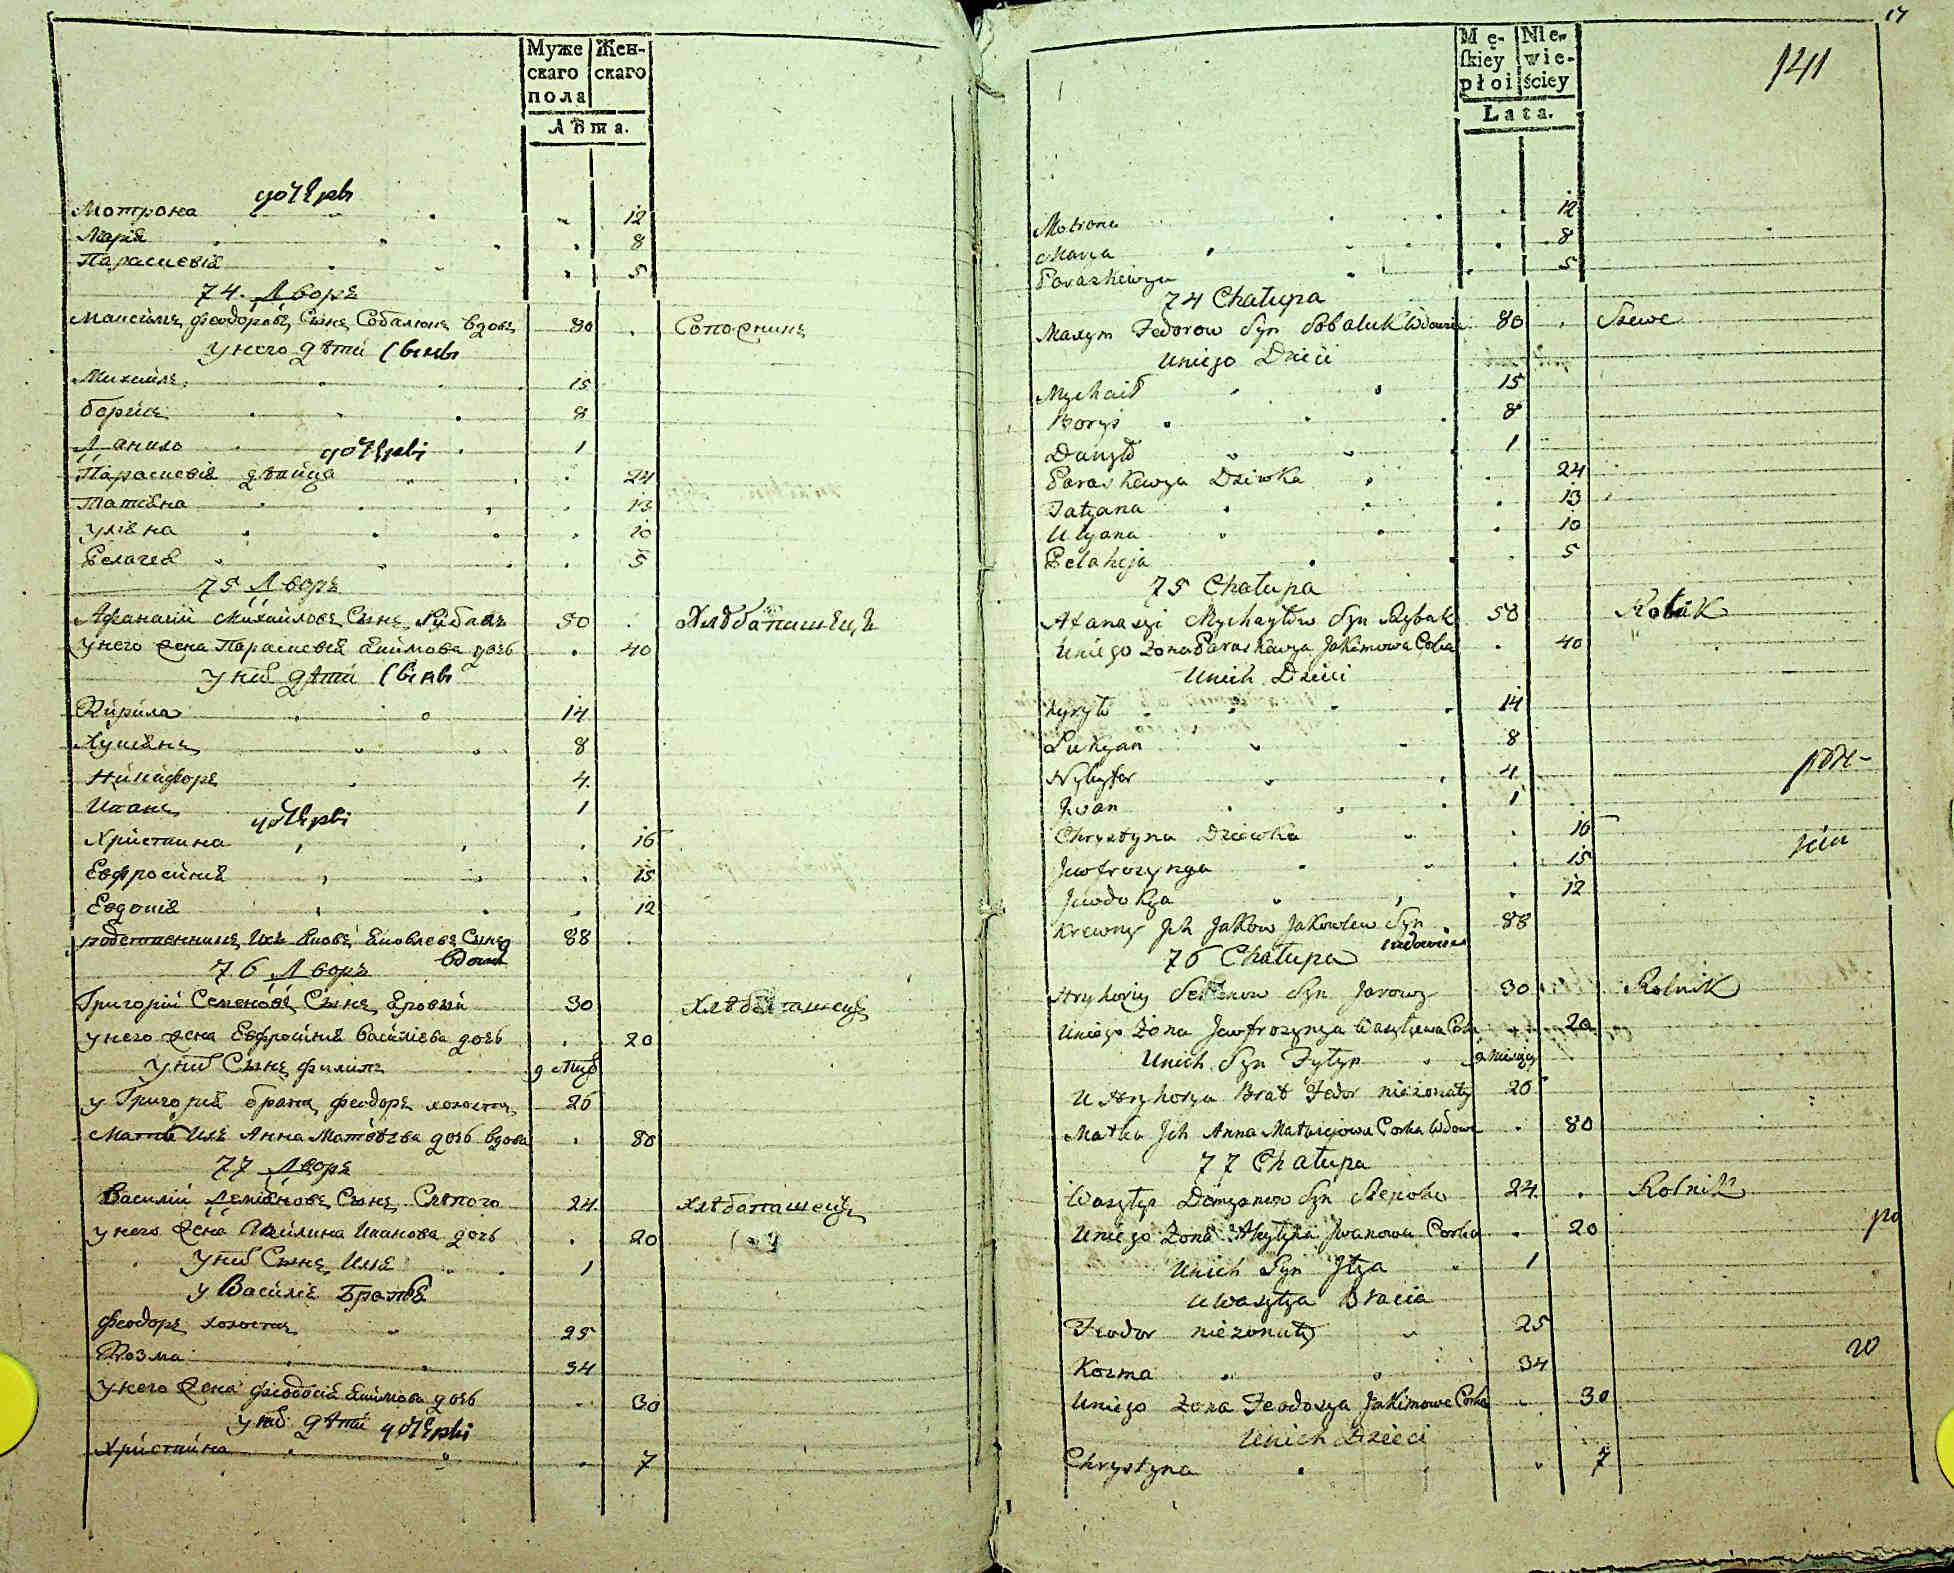 Муже Жен-
скаго скаго
пола
Лѣта.
дочери
Мотрона 12
Марія 8
Парасцевія 5
74. Дворъ
Максимъ Феодоровъ Сынъ Собалюкъ вдовъ 80
у него дѣти Сыни
Михайлъ 15
Борисъ 8
Данило 1
дочери
Парасцевія дѣвица 24
Татіяна 13
Уліяна 10
Пелагея 5
75 Дворъ
Афанасій Михайловъ Сынъ Рыбакъ 50 Хлѣбопашецъ
у него жена Парасцевія Якимова дочь 40
у нихъ дѣти Сыни
Кирила 14
Лукіянъ 8
Никифоръ 4
Иванъ 1
дочери
Христина 16
Евфросинія 15
Евдокія 12
родственникъ ихъ Яковъ Яковлевъ Сынъ 88
вдовъ
76 Дворъ
Григорій Семеновъ Сынъ Яровый 30 Хлѣбопашецъ
у него жена Евфросинія Василіева дочь 20
у нихъ Сынъ Филипъ 9
у Григорія братъ Феодоръ холостъ 26
Мать ихъ Анна Матѳѣева дочь вдова 80
77 Дворъ
Василій Деміяновъ Сынъ Слѣпого 24 Хлѣбопашецъ
у него жена Акилина Иванова дочь 20
у нихъ Сынъ Илія 1
у Василія Братья
Феодоръ холостъ 25
Козма 34
у него жена Феодосія Якимова дочь 30
у нихъ дѣти дочери
Христина 7
17
141
Mę- Nie-
skiey wie-
płoi ściey
Lata.
Motrona 12
Marya 8
Paraskewya 5
74 Chałupa
Maxym Fedorow Syn Sobaluk Wdowiec 80 Szewc
Uniego Dzieci
Mychaił 15
Borys 8
Danyło 1
Paraskewya Dziwka 24
Tatyana 13
Ulyana 10
Pelaheja 5
75 Chałupa
Atanazy Mychayłow Syn Rybak 50 Rolnik
Uniego Zona Paraskewya Jakimowa Corka 40
Unich Dzieci
Kyryło 14
Łukyan 8
Nykyfor 4
Iwan 1
Chrystyna Dziewka 16
Jewfrozynya 15
Jewdokya 12
Krewny Jch Jakow Jakowlew Syn 88
wdowiec
76 Chałupa
Hryhoriy Semenow Syn Jarowy 30 Rolnik
Uniego Zona Jewfrozynya Wasylewa Corka 20
Unich Syn Fylyp 9 miesięcy
U Hryhorya Brat Fedor niezonaty 26
Matka Jch Anna Matwiejowa Corka Wdowa 80
77 Chałupa
Wasylyi Demyanow Syn Slepoho 24 Rolnik
Uniego Zona Akylina Jwanowa Corka 20
Unich Syn Jlya 1
U Wasylya Bracia
Feodor niezonaty 25
Kozma 34
Uniego Zona Feodosya Jakimowa Corka 30
Unich Dzieci
Chrystyna 7